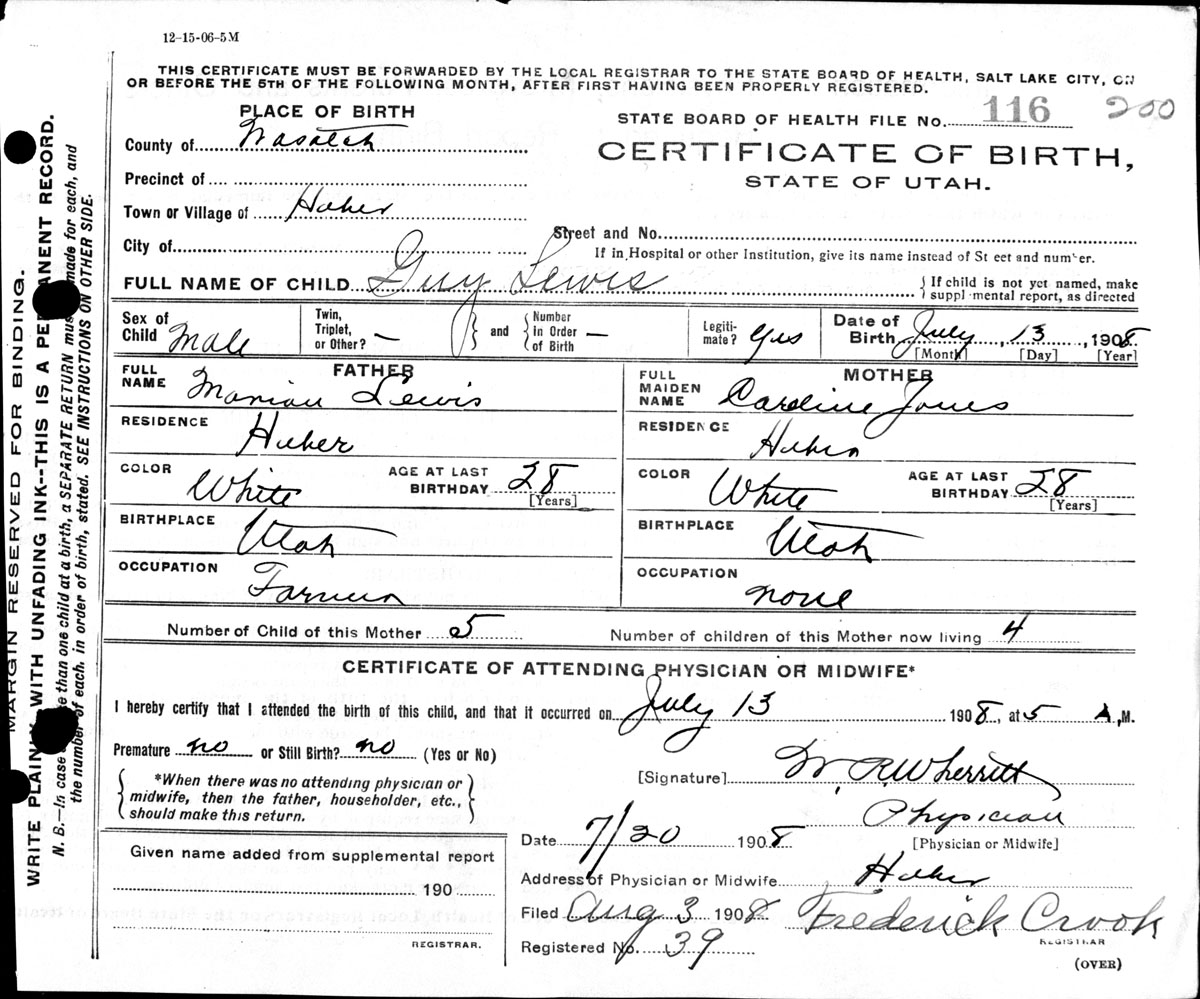 12–15–06–5M
THIS CERTIFICATE MUST BE FORWARDED BY THE LOCAL REGISTRAR TO THE STATE BOARD OF HEALTH, SALT LAKE CITY, ON
OR BEFORE THE 5TH OF THE FOLLOWING MONTH, AFTER FIRST HAVING BEEN PROPERLY REGISTERED.
PLACE OF BIRTH
STATE BOARD OF HEALTH FILE No. 116 200
County of Wasatch
CERTIFICATE OF BIRTH,
STATE OF UTAH.
Precinct of
Town or Village of Heber
Street and No.
City of
If in Hospital or other Institution, give its name instead of St eet and number.
FULL NAME OF CHILD Guy Lewis
If child is not yet named, make
suppl mental report, as directed
Sex of Child Male
Twin, Triplet, or Other? —
and Number in Order of Birth —
Legiti-mate? Yes
Date of Birth July 13, 1908
[Month] [Day] [Year]
FATHER
FULL NAME Marion Lewis
RESIDENCE Heber
COLOR White
AGE AT LAST BIRTHDAY 28
[Years]
BIRTHPLACE Utah
OCCUPATION Farmer
MOTHER
FULL MAIDEN NAME Caroline Jones
RESIDENCE Heber
COLOR White
AGE AT LAST BIRTHDAY 28
[Years]
BIRTHPLACE Utah
OCCUPATION none
Number of Child of this Mother 5
Number of children of this Mother now living 4
CERTIFICATE OF ATTENDING PHYSICIAN OR MIDWIFE*
I hereby certify that I attended the birth of this child, and that it occurred on July 13 1908, at 5 A.M.
Premature no or Still Birth? no (Yes or No)
*When there was no attending physician or
midwife, then the father, householder, etc.,
should make this return.
[Signature] W. R. Wherritt
Physician
[Physician or Midwife]
Date 7/20 1908
Address of Physician or Midwife Heber
Filed Aug 3 1908 Frederick Crook
REGISTRAR
Registered No. 39
(OVER)
Given name added from supplemental report
190
REGISTRAR.
MARGIN RESERVED FOR BINDING.
WRITE PLAINLY WITH UNFADING INK--THIS IS A PERMANENT RECORD.
N. B.—In case than one child at a birth, a SEPARATE RETURN must made for each, and
the number of each, in order of birth, stated. SEE INSTRUCTIONS ON OTHER SIDE.